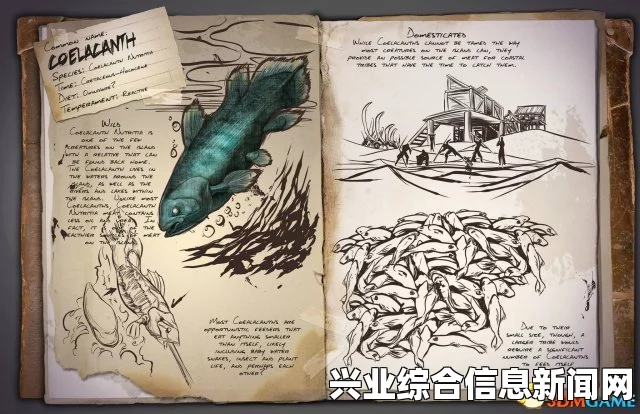 Common name:
COELACANTH
Species: Coelacanth Nutritia
Time: Cretaceous-Holocene
Diet: Omnivore?
Temperament: Reactive
Wild
Coelacanth Nutritia is
one of the few
creatures on the island
with a relative that can
be found back home.
The Coelacanth lives in
the waters around the
island, as well as the
rivers and lakes within
the island. Unlike most
Coelacanths, Coelacanth
Nutritia meat contains
less oil and urea. In
fact, it
healthier sources of meat
on the island
Most Coelacanths are
opportunistic feeders that
eat anything smaller
than itself, likely
including baby water
snakes, insect and plant
life, and perhaps each
other?
Domesticated
While Coelacanths cannot be tamed the way
most creatures on the island can, they
provide an possible source of meat for coastal
tribes that have the time to catch them.
Due to their
small size, though, a
larger tribe would
require a significant
number of Coelacanths
to feed itself
兴业综合信息新闻网
3DMGAME